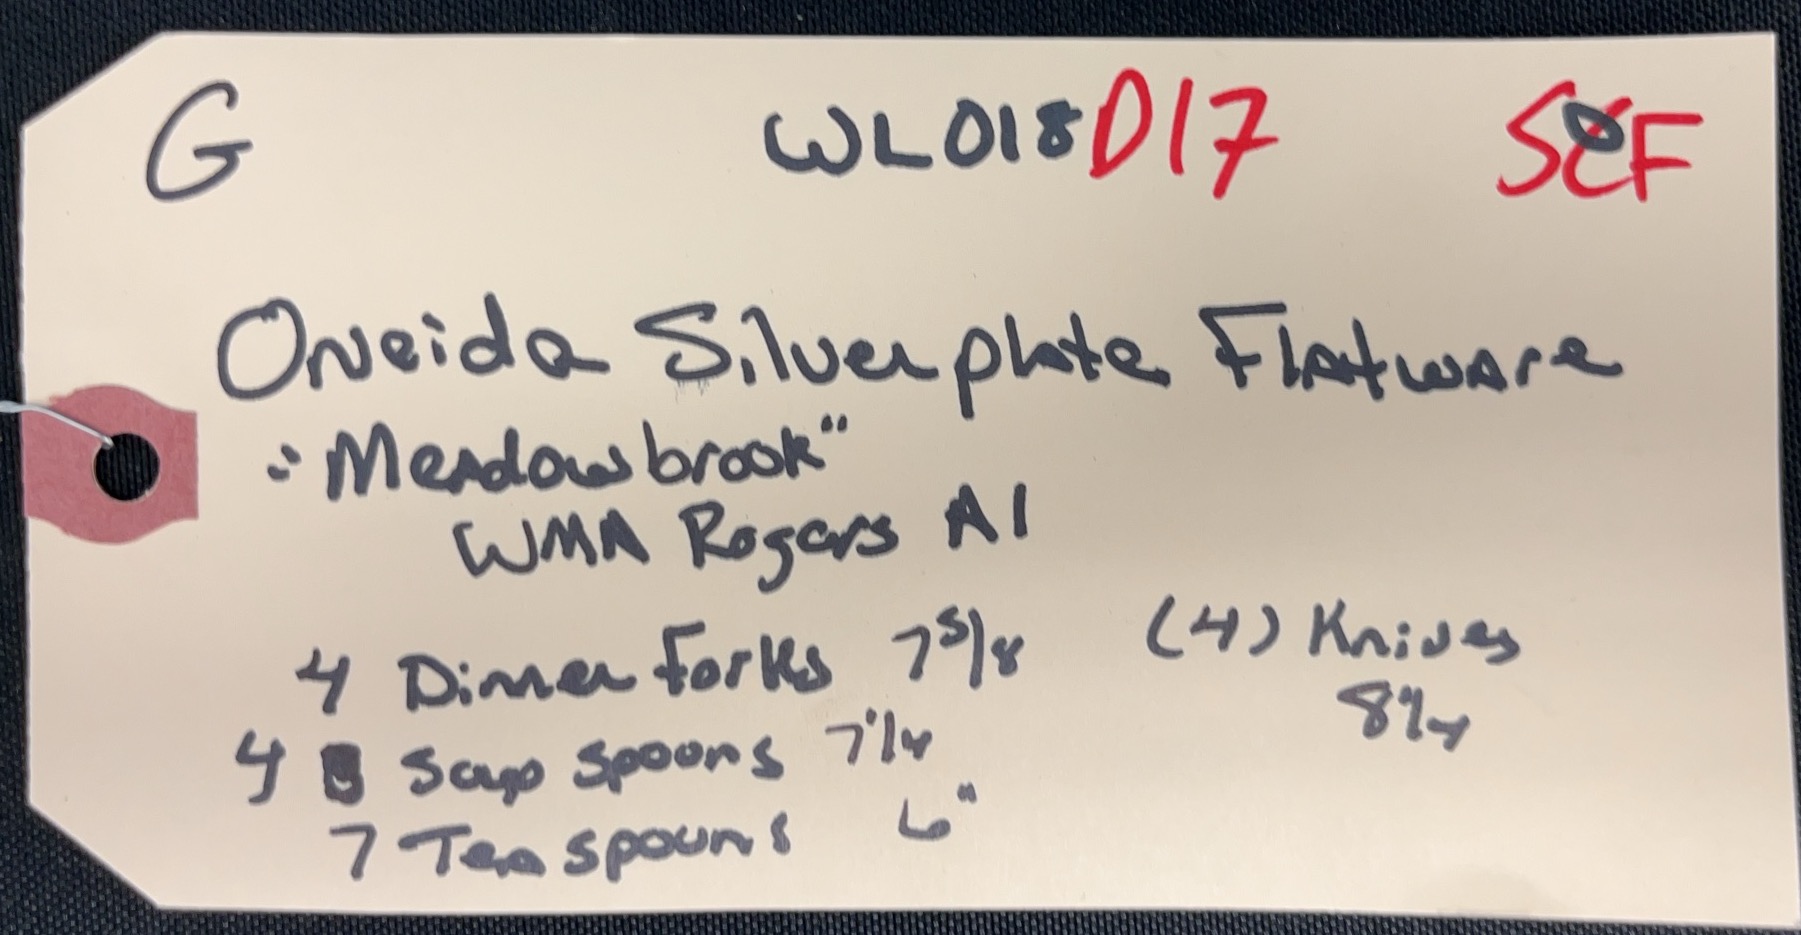 G WL018D17 SEF
Oneida Silverplate Flatware
"Meadowbrook"
WMA Rogers A1
4 Dinner Forks 7 5/8 (4) Knives
8 1/4
4 Soup spoons 7 1/4
7 Teaspoons 6"